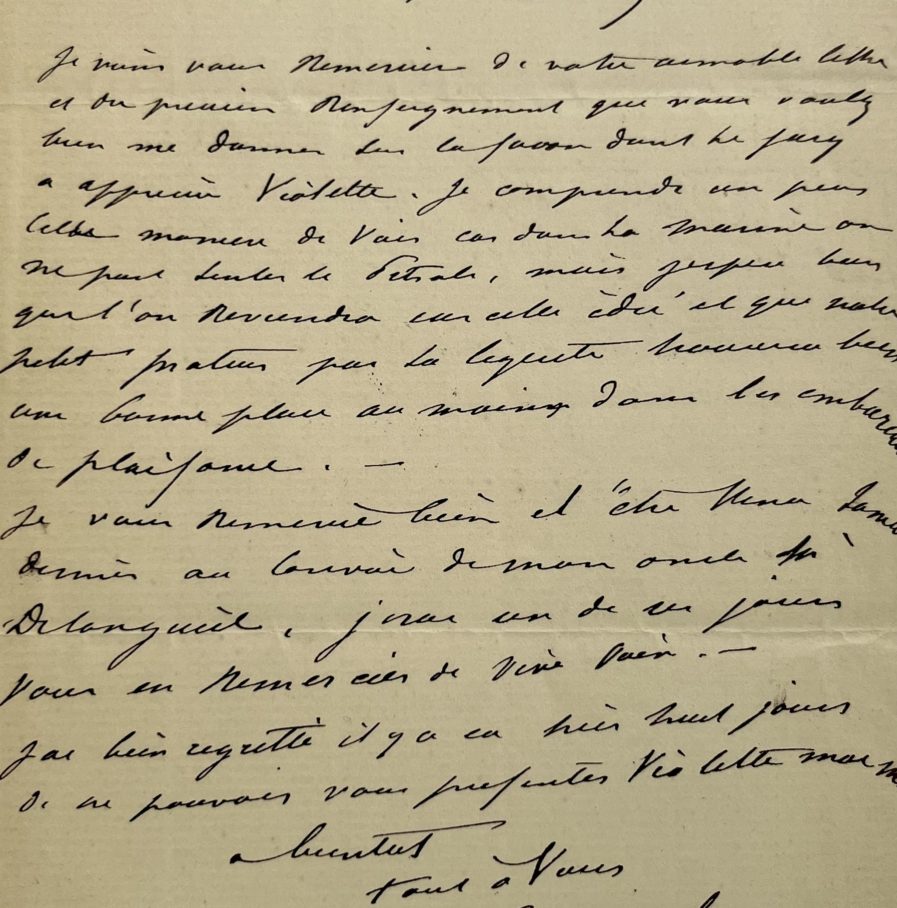 Je viens vous Remercier de votre aimable lettre
et du précieu Renseignement que vous voulez
bien me donner sur la facon dont le jury
a apprécié Violette. Je comprends un peu
cette maniere de Voir car dans la marine on
ne peut sentir le Pétrole, mais j'espere bien
que l'on Reviendra sur cette idée et que notre
petit trouvera bien
une bonne place au moins dans les embarcations
de plaisance. —
Je vous Remercie bien et être Venu Samedi
dernier au Convoi de mon oncle Mr
Delongueil, j'irai un de ces jours
Vous en Remercier de Vive Voix. —
J'ai bien regretté il y a eu hier huit jours
de ne pouvoir vous présenter Violette moi m
a bientot
tout à Vous